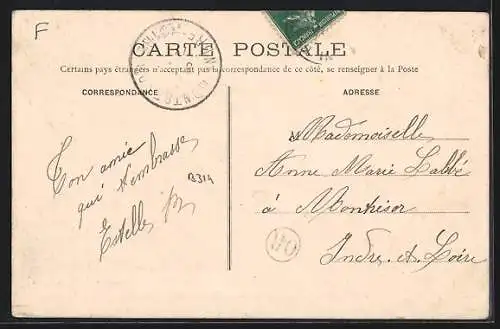 F
CARTE POSTALE
Certains pays étrangers n'acceptant pas la correspondance de ce côté, se renseigner à la Poste
CORRESPONDANCE
Ton amie
qui t'embrasse
Estelle
B314
ADRESSE
Mademoiselle
Anne Marie Labbé
à Montrésor
Indre et Loire
OR